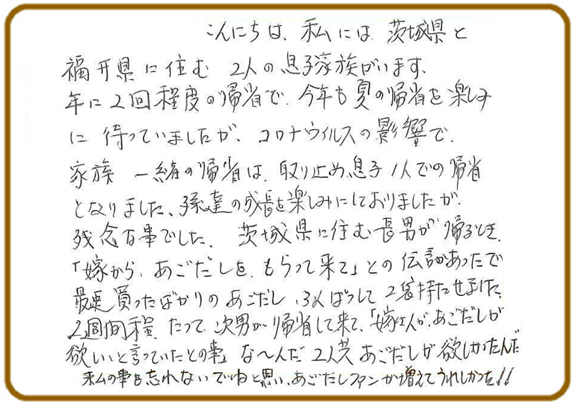 こんにちは、私には 茨城県と
福井県に住む 2人の息子家族がいます。
年に2回程度の帰省で、今年も夏の帰省を楽しみ
に 待っていましたが、コロナウイルスの影響で、
家族 一緒の帰省は、取り止め息子1人での帰省
となりました、孫達の成長を楽しみにしておりましたが
残念な事でした、茨城県に住む長男が帰るとき、
「嫁から、あごだしを、もらって来て」との伝言があったで
最近買ったばかりのあごだし、3人ばつして 2袋持たせました、
2週間程 たって、次男が帰省して来て、「嫁さんが、あごだしが
欲しいと言っていたとの事、な〜んだ 2人共 あごだしが欲しかったんだ
私の事も忘れないでねと思い、あごだしファンが増えてうれしかった!!